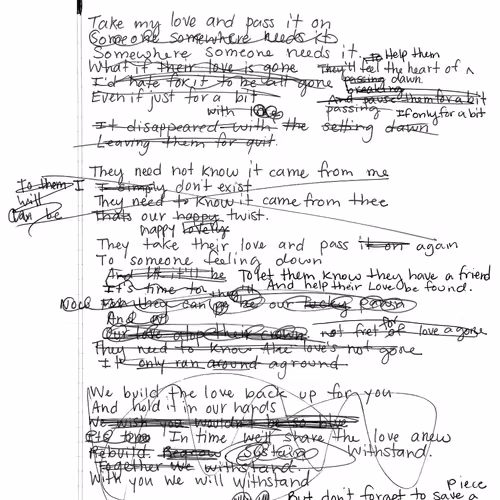 Take my love and pass it on
Someone somewhere needs it
Somewhere someone needs it.
Help them
What if their love is gone They'll feel the heart of
I'd hate for it to be all gone passing dawn
breaking
Even if just for a bit And pause them for a bit
with passing If only for a bit
It disappeared with the setting dawn
Leaving them for quit.
They need not know it came from me
To them I I simply don't exist
will They need to know it came from thee
can be Thats our happy twist.
happy lovely
They take their love and pass it on again
To someone feeling down
And it'll be To let them know they have a friend
It's time to And help their Love be found.
they can be our
And
Our love atop their crown not fret of love agone
for
They need to know the love's not gone
It only ran around aground
We build the love back up for you
And hold it in our hands
We wish you wouldn't be so blue
In time we'll share the love anew
Rebuild. Sustain withstand.
Together we withstand.
With you we will withstand
piece
But don't forget to save a